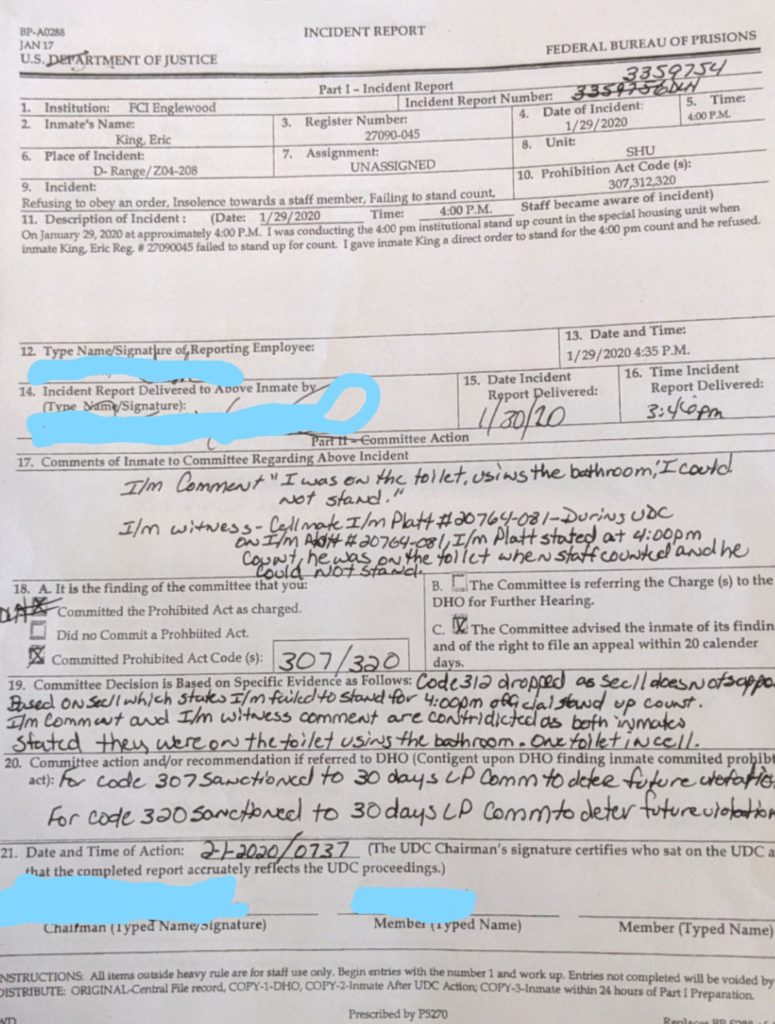 BP-A0288
INCIDENT REPORT
JAN 17
U.S. DEPARTMENT OF JUSTICE
FEDERAL BUREAU OF PRISIONS
Part I - Incident Report
3359754
1. Institution: FCI Englewood
Incident Report Number: 3359756 DLH
2. Inmate's Name:
King, Eric
3. Register Number:
27090-045
4. Date of Incident:
1/29/2020
5. Time:
4:00 P.M.
6. Place of Incident:
D- Range/ Z04-208
7. Assignment:
UNASSIGNED
8. Unit:
SHU
9. Incident:
Refusing to obey an order, Insolence towards a staff member, Failing to stand count,
10. Prohibition Act Code (s):
307,312,320
11. Description of Incident : (Date: 1/29/2020 Time: 4:00 P.M. Staff became aware of incident)
On January 29, 2020 at approximately 4:00 P.M. I was conducting the 4:00 pm institutional stand up count in the special housing unit when
inmate King, Eric Reg. # 27090045 failed to stand up for count. I gave inmate King a direct order to stand for the 4:00 pm count and he refused.
12. Type Name/Signature of Reporting Employee:
13. Date and Time:
1/29/2020 4:35 P.M.
14. Incident Report Delivered to Above Inmate by
(Type Name/Signature):
15. Date Incident
Report Delivered:
1/30/20
16. Time Incident
Report Delivered:
3:46pm
Part II - Committee Action
17. Comments of Inmate to Committee Regarding Above Incident
I/m Comment "I was on the toilet, using the bathroom, I could
not stand."
I/m witness - Cellmate I/m Platt #20764-081 - During UDC
on I/m Platt #20764-081, I/m Platt stated at 4:00pm
Count, he was on the toilet when staff counted and he
could not stand.
18. A. It is the finding of the committee that you:
DLH Committed the Prohibited Act as charged.
Did no Commit a Prohbiited Act.
Committed Prohibited Act Code (s): 307/320
B. The Committee is referring the Charge (s) to the
DHO for Further Hearing.
C. The Committee advised the inmate of its findin
and of the right to file an appeal within 20 calender
days.
19. Committee Decision is Based on Specific Evidence as Follows: Code 312 dropped as Sec 11 does not suppo
Based on Sec 11 which states I/m failed to stand for 4:00pm official stand up count.
I/m Comment and I/m witness comment are contridicted as both inmates
stated they were on the toilet using the bathroom. One toilet in cell.
20. Committee action and/or recommendation if referred to DHO (Contigent upon DHO finding inmate commited prohibt
act): For code 307 sanctioned to 30 days LP Comm to deter future violatio
For code 320 sanctioned to 30 days LP Comm to deter future violation
21. Date and Time of Action: 2-1-2020/0737 (The UDC Chairman's signature certifies who sat on the UDC a
that the completed report accruately reflects the UDC proceedings.)
Chaifman (Typed Name/Signature)
Member (Typed Name)
Member (Typed Name)
INSTRUCTIONS: All items outside heavy rule are for staff use only. Begin entries with the number 1 and work up. Entries not completed will be voided by
DISTRIBUTE: ORIGINAL-Central File record, COPY-1-DHO, COPY-2-Inmate After UDC Action; COPY-3-Inmate within 24 hours of Part I Preparation.
Prescribed by P5270